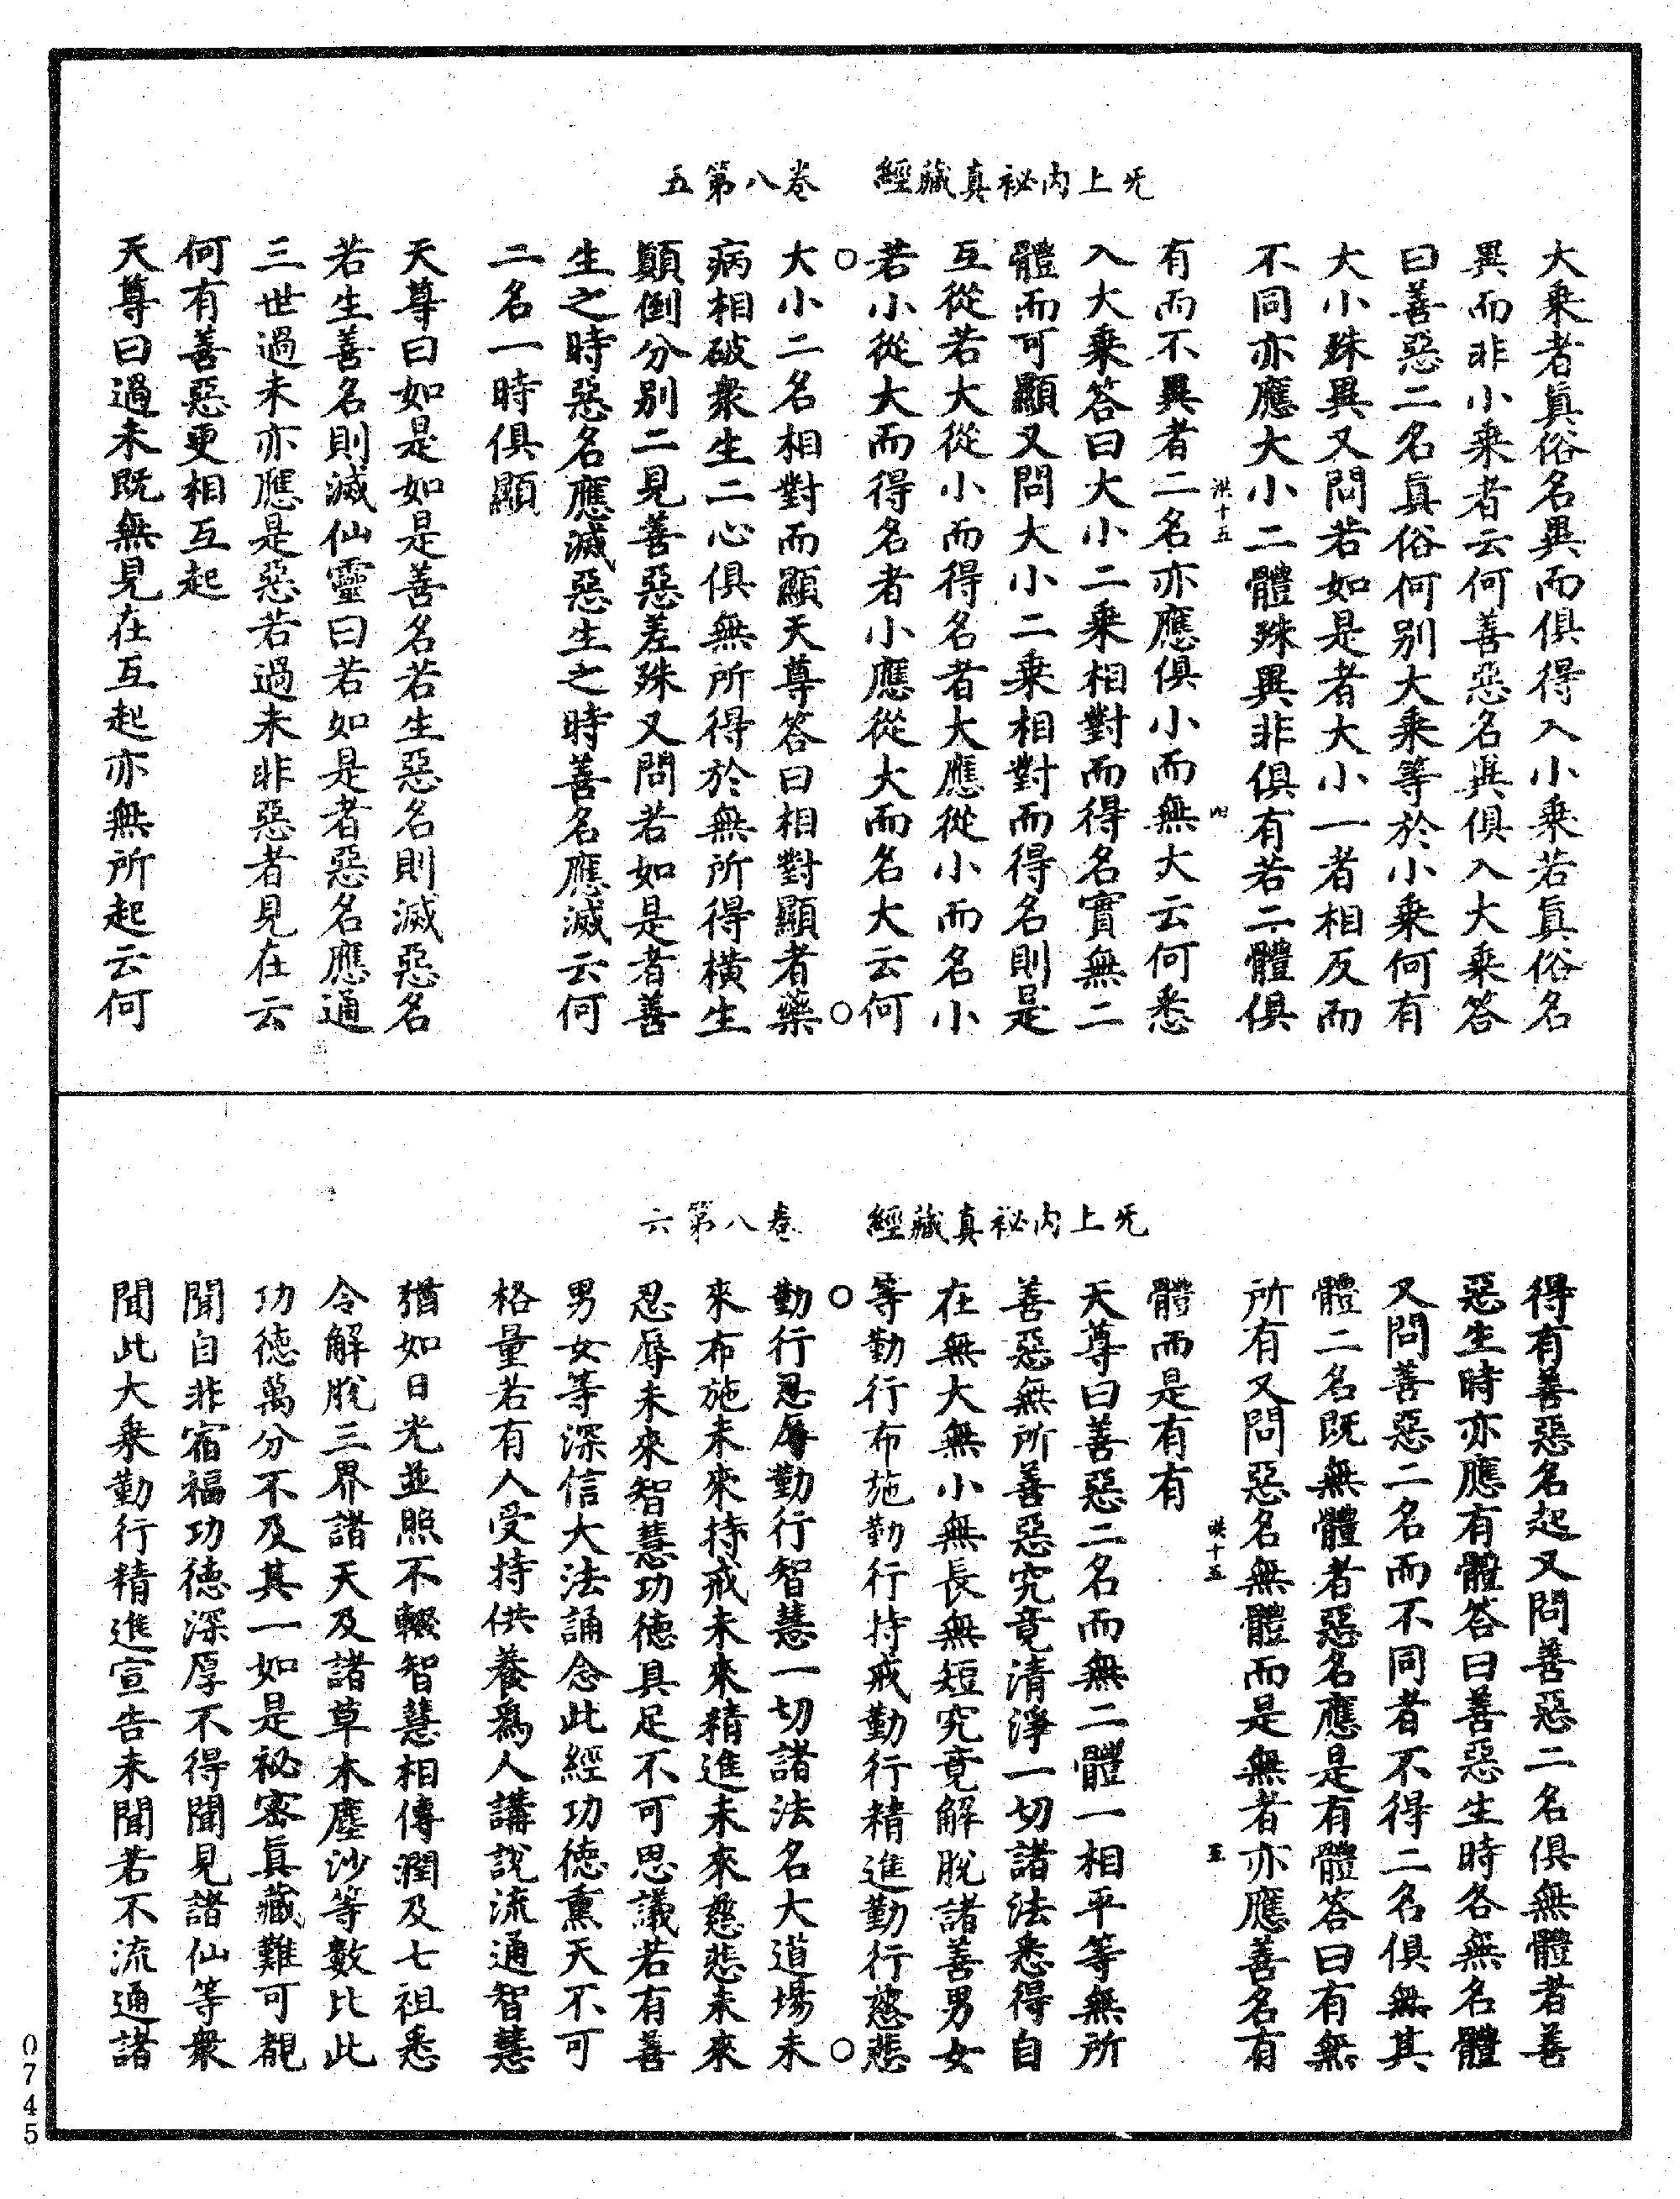 无上內祕真藏經　卷八第五
大乗者眞俗名異而俱得入小乗若眞俗名
異而非小乗者云何善惡名異俱入大乗答
曰善惡二名眞俗何别大乗等於小乗何有
大小殊異又問若如是者大小一者相反而
不同亦應大小二體殊異非俱有若二體俱
洪十五　內
有而不異者二名亦應俱小而無大云何悉
入大乗答曰大小二乗相對而得名實無二
體而可顯又問大小二乗相對而得名則是
互從若大從小而得名者大應從小而名小
若小從大而得名者小應從大而名大云何
大小二名相對而顯天尊答曰相對顯者藥
病相破衆生二心俱無所得於無所得橫生
顛倒分别二見善惡差殊又問若如是者善
生之時惡名應滅惡生之時善名應滅云何
二名一時俱顯
天尊曰如是如是善名若生惡名則滅惡名
若生善名則滅仙靈曰若如是者惡名應通
三世過未亦應是惡若過未非惡者見在云
何有善惡更相互起
天尊曰過未既無見在互起亦無所起云何
无上內祕真藏經　卷八第六
得有善惡名起又問善惡二名俱無體者善
惡生時亦應有體答曰善惡生時各無名體
又問善惡二名而不同者不得二名俱無其
體二名既無體者惡名應是有體答曰有無
所有又問惡名無體而是無者亦應善名有
洪十五　五
體而是有有
天尊曰善惡二名而無二體一相平等無所
善惡無所善惡究竟清淨一切諸法悉得自
在無大無小無長無短究竟解脫諸善男女
等勤行布施勤行持戒勤行精進勤行慈悲
勤行忍辱勤行智慧一切諸法名大道場未
來布施未來持戒未來精進未來慈悲未來
忍辱未來智慧功德具足不可思議若有善
男女等深信大法誦念此經功德熏天不可
格量若有人受持供養爲人講說流通智慧
猶如日光並照不輟智慧相傳潤及七祖悉
令解脫三界諸天及諸草木塵沙等數比此
功德萬分不及其一如是祕密眞藏難可覩
聞自非宿福功德深厚不得聞見諸仙等衆
聞此大乗勤行精進宣告未聞若不流通諸
0745